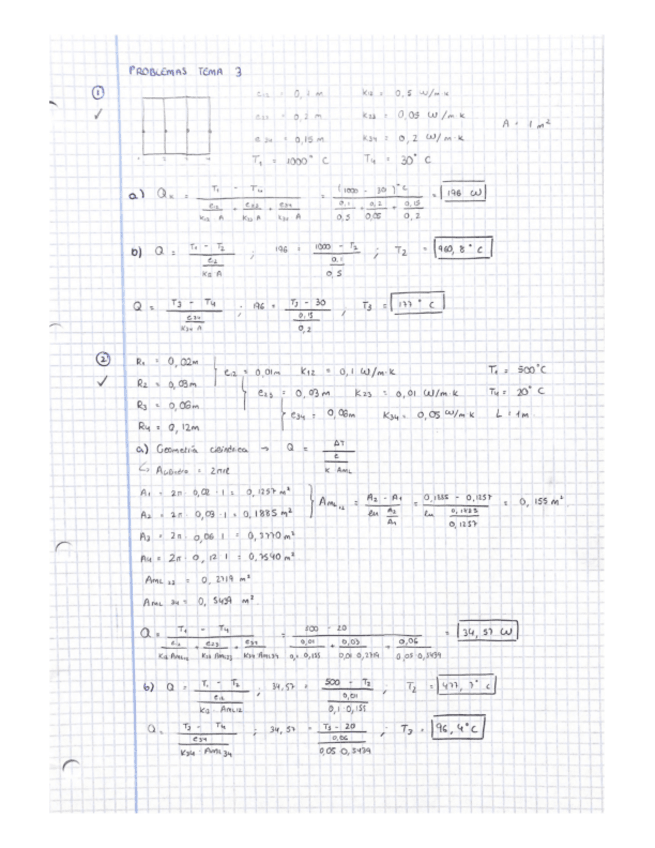 PROBLEMAS TEMA 3
① e12 = 0,1 m K12 = 0,5 W/m·K
e23 = 0,2 m K23 = 0,05 W/m·K A = 1 m²
e34 = 0,15 m K34 = 0,2 W/m·K
T1 = 1000° C T4 = 30° C
a) Q = (T1 - T4) / (e12/(K12 A) + e23/(K23 A) + e34/(K34 A)) = (1000 - 30)°C / (0,1/0,5 + 0,2/0,05 + 0,15/0,2) = 196 W
b) Q = (T1 - T2) / (e12/(K12 A)) ; 196 = (1000 - T2) / (0,1/0,5) ; T2 = 960,8° C
Q = (T3 - T4) / (e34/(K34 A)) ; 196 = (T3 - 30) / (0,15/0,2) ; T3 = 177° C
② R1 = 0,02m
e12 = 0,01m K12 = 0,1 W/m·K T1 = 500°C
R2 = 0,03m
e23 = 0,03 m K23 = 0,01 W/m·K T4 = 20° C
R3 = 0,06m
e34 = 0,06m K34 = 0,05 W/m·K L = 1m
R4 = 0,12m
a) Geometría cilíndrica → Q = ΔT / (e/(K AML))
↳ Acilindro = 2πrl
A1 = 2π · 0,02 · 1 = 0,1257 m²
AML12 = (A2 - A1) / (ln A2/A1) = (0,1885 - 0,1257) / (ln 0,1885/0,1257) = 0,155 m²
A2 = 2π · 0,03 · 1 = 0,1885 m²
A3 = 2π · 0,06 · 1 = 0,3770 m²
A4 = 2π · 0,12 · 1 = 0,7540 m²
AML 23 = 0,2719 m²
AML 34 = 0,5439 m²
Q = (T1 - T4) / (e12/(K12 AML12) + e23/(K23 AML23) + e34/(K34 AML34)) = (500 - 20) / (0,01/(0,1·0,155) + 0,03/(0,01·0,2719) + 0,06/(0,05·0,5439)) = 34,57 W
b) Q = (T1 - T2) / (e12/(K12 · AML12)) ; 34,57 = (500 - T2) / (0,01/(0,1·0,155)) ; T2 = 477,7° C
Q = (T3 - T4) / (e34/(K34 · AML34)) ; 34,57 = (T3 - 20) / (0,06/(0,05·0,5439)) ; T3 = 96,4°C